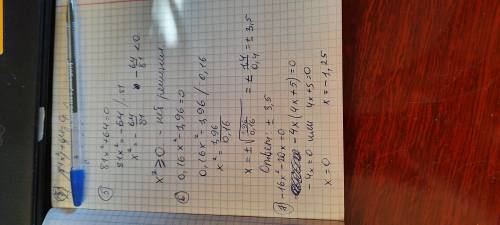 5) 81x²+64=0
81x²=-64 / :81
x²=-64/81   -64/81<0
x²≥0 - нет решения
6) 0,16x²-1,96=0
0,16x²=1,96 / 0,16
x²=1,96/0,16
x=±√(1,96/0,16) = ±1,4/0,4 = ±3,5
Ответ: ± 3,5
-16x²-20x=0
-4x(4x+5)=0
-4x=0 или 4x+5=0
x=0   x=-1,25